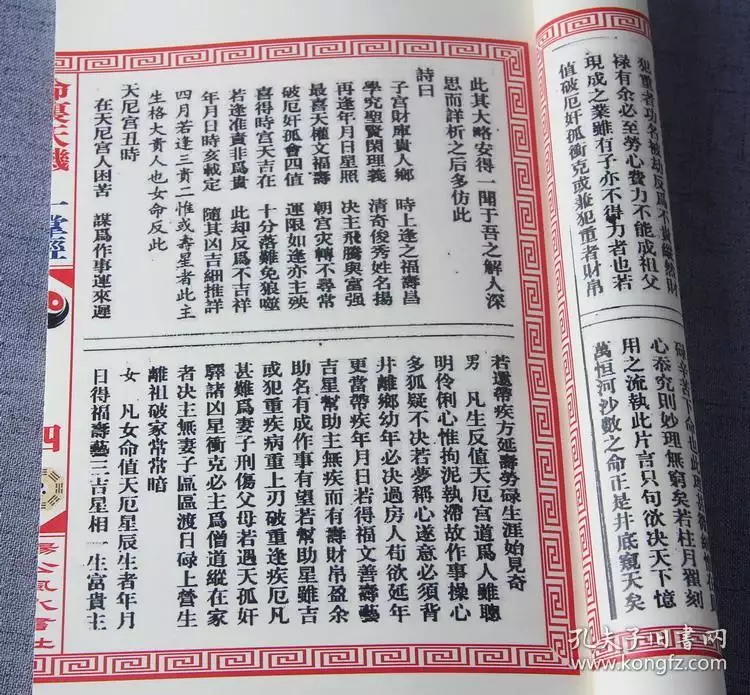 犯重者功名被劫反爲不貴縱然財
祿有余必至勞心費力不能成祖父
現成之業雖有子亦不得力者也若
值破厄奸孤衝克或兼犯重者財帛
碌辛苦下命也此
心叅究則妙理無窮矣若柱月翟刻
用之流執此片言只句欲决天下憶
萬恒河沙數之命正是井底窺天矣
此其大略安得一聞于吾之解人深
思而詳析之后多仿此
詩曰
子宫財庫貴人鄉　時上逢之福壽昌
學究聖賢閑理義　清奇俊秀姓名揚
再逢年月日星照　决主飛騰與富强
最喜天權文福壽　朝宫灾轉不尋常
破厄奸孤會四值　運限如逢亦主殃
喜得時宫天吉在　十分落難免狼噬
若逢准賣非爲貴　此却反爲不吉祥
年月日時亥載定　隨其凶吉細推詳
四月若逢三貴二惟或壽星者此主
生格大貴人也女命反此
天尼宫丑時
在天尼宫人困苦　謀爲作事運來遲
若還帶疾方延壽勞碌生涯始見奇
男　凡生反值天厄宫道爲人雖聰
明伶俐心惟拘泥執滯故作事操心
多狐疑不决若夢稱心遂意必須背
井離鄉幼年必决過房人苟欲延年
更當帶疾年月日若得福文善壽藝
吉星幫助主無疾而有壽財帛盈余
助名有成作事有望若幫助星雖吉
或犯重疾病重上刃破重逢疾厄凡
甚難爲妻子刑傷父母若過天孤奸
驛諸凶星衝克必主爲僧道縱在家
者决主無妻子區區渡日碌上營生
離祖破家常常暗
女　凡女命值天厄星辰生者年月
日得福壽藝三吉星相一生富貴主
命裏天機
一掌經
四
孔夫子旧書网
www.kongfz.com